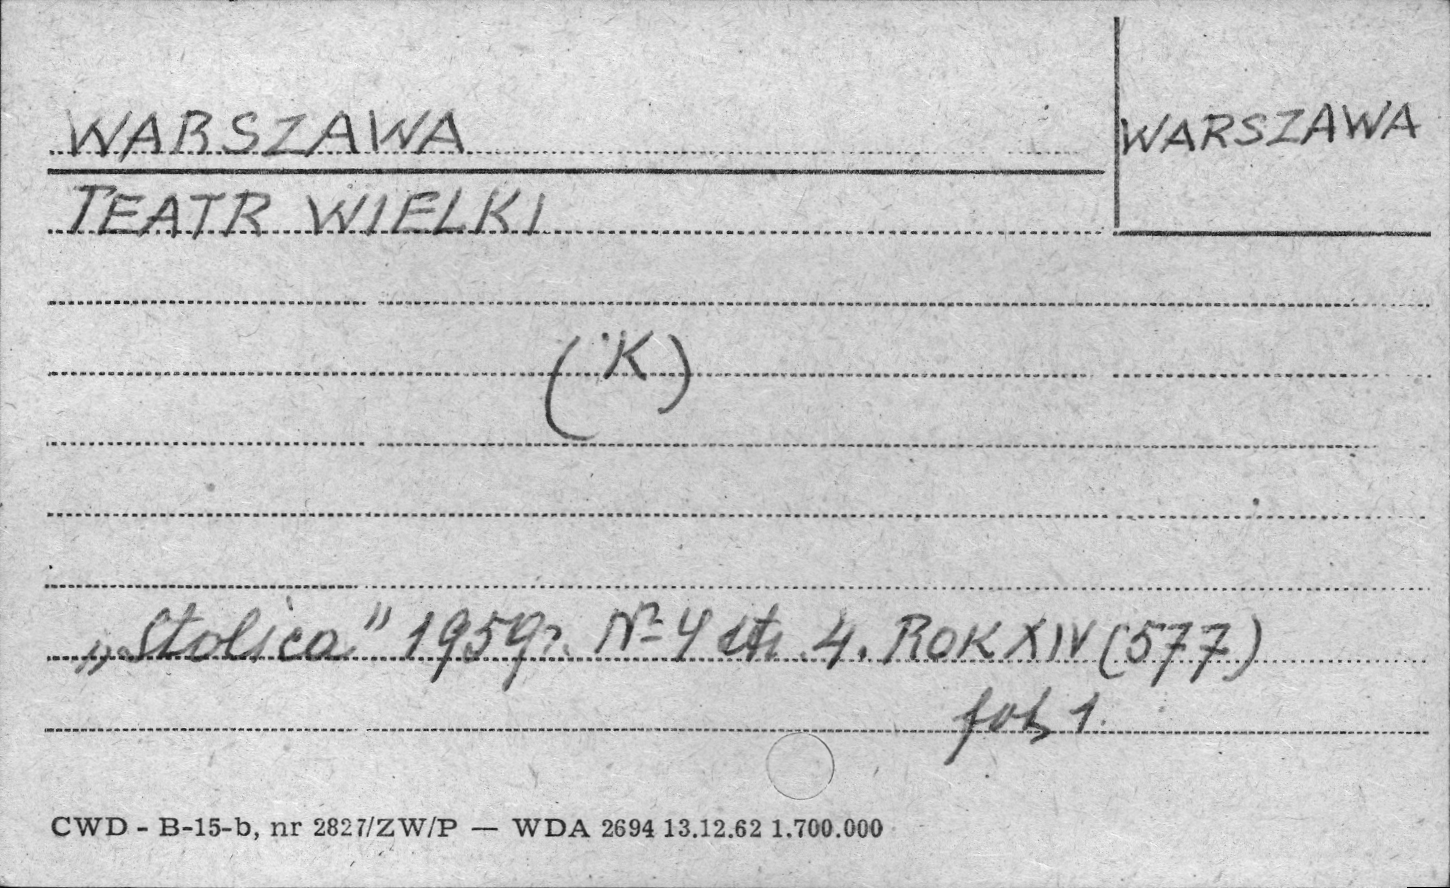 WARSZAWA
WARSZAWA
TEATR WIELKI
(K)
„Stolica" 1959r. Nr 4 str. 4. ROK XIV (577)
fot. 1.
CWD - B-15-b, nr 2827/ZW/P — WDA 2694 13.12.62 1.700.000